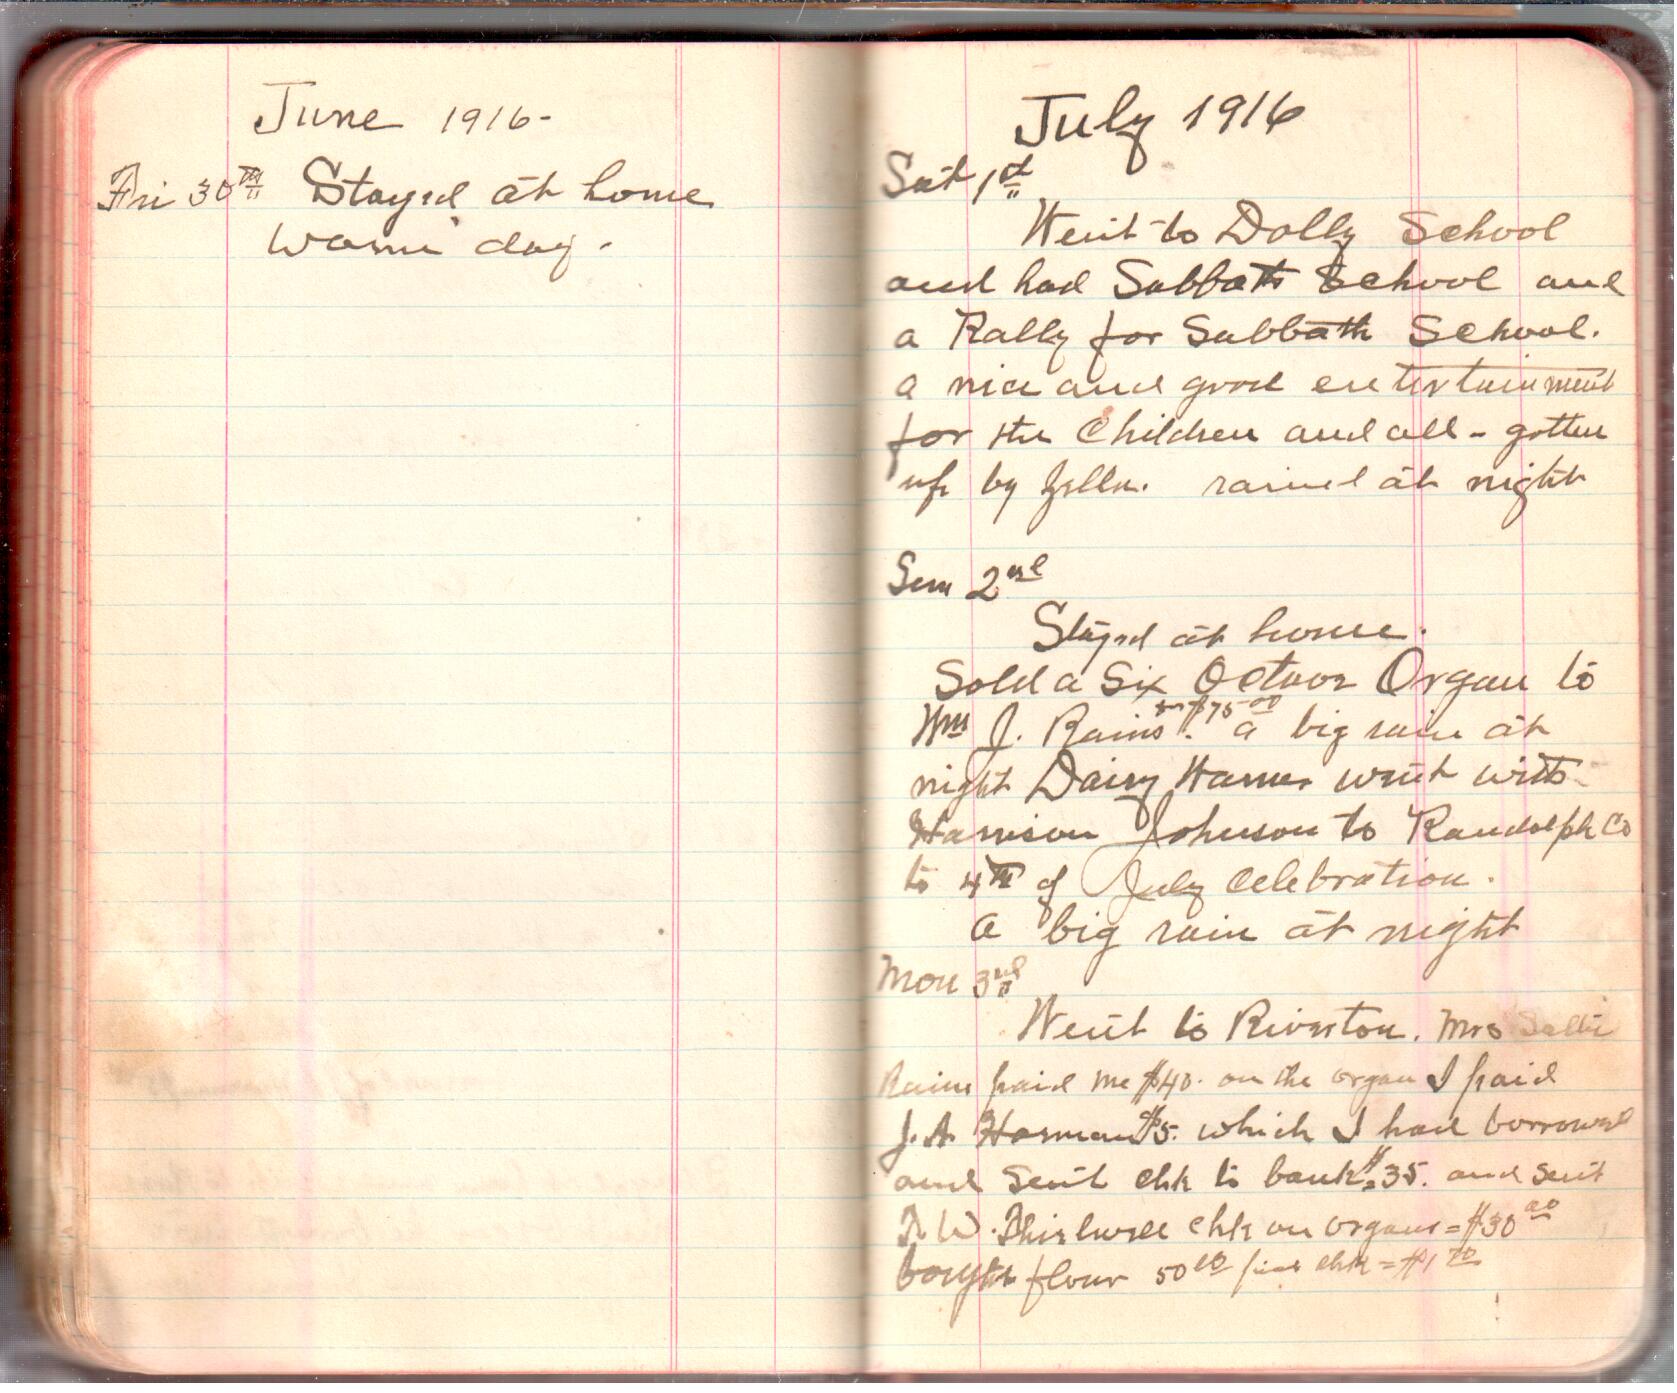 June 1916-
Fri 30th Stayed at home
warm day.
July 1916
Sat 1st
Went to Dolly School
and had Sabbath School and
a Rally for Sabbath School.
a nice and good entertainment
for the Children and all - gotten
up by Zella. rained at night
Sun 2nd
Stayed at home.
Sold a Six Octave Organ to
for $75.00
Wm J. Rains. a big rain at
night Daisy Harner went with
Harrison Johnson to Randolph Co
to 4th of July Celebration.
a big rain at night
Mon 3rd
Went to Riverton. Mrs Sallie
Rains paid me $40. on the organ I paid
J.A. Harman $5. which I had borrowed
and sent chk to bank $35. and sent
W. chk on organs = $30 00
bought flour 50 chk = $1 70